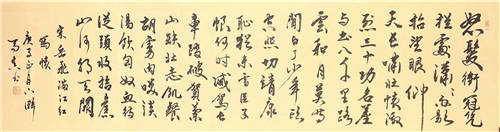 怒髮衝冠凭
欄處瀟瀟雨歇
抬望眼仰
天長嘯壯懷激
烈三十功名塵
与土八千里路
雲和月莫等
閒白了少年頭
空悲切靖康
恥猶未雪臣子
恨何時滅駕長
車踏破賀蘭
山缺壯志飢餐
胡虜肉笑談
渴飲匈奴血待
從頭收拾舊
山河朝天闕
宋岳飛滿江紅
寫懷
庚子正月